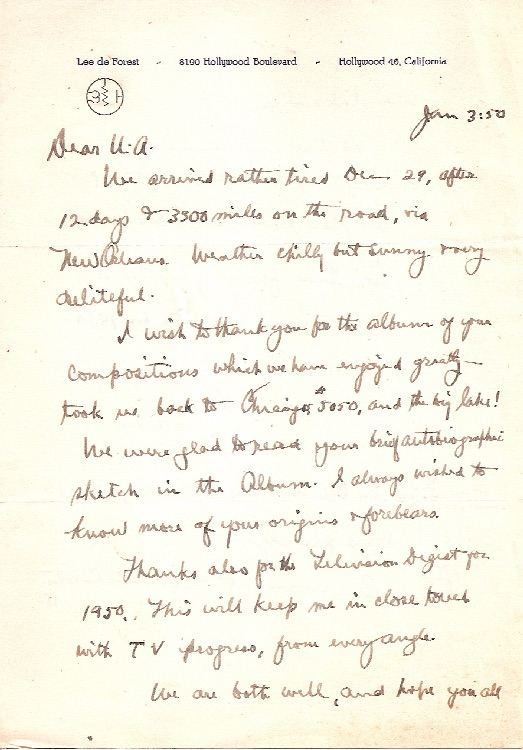 Lee de Forest - 8190 Hollywood Boulevard - Hollywood 46, California
Jan 3:50
Dear U.A.
We arrived rather tired Dec 29, after
12 days & 3300 miles on the road, via
New Orleans. Weather chilly but sunny & very
deliteful.
I wish to thank you for the album of your
compositions which we have enjoyed greatly—
took us back to #5050, and the big lake!
We were glad to read your brief autobiographic
sketch in the Album. I always wished to
know more of your origins & forebears.
Thanks also for the Television Digest for
1950. This will keep me in close touch
with TV progress, from every angle.
We are both well, and hope you all